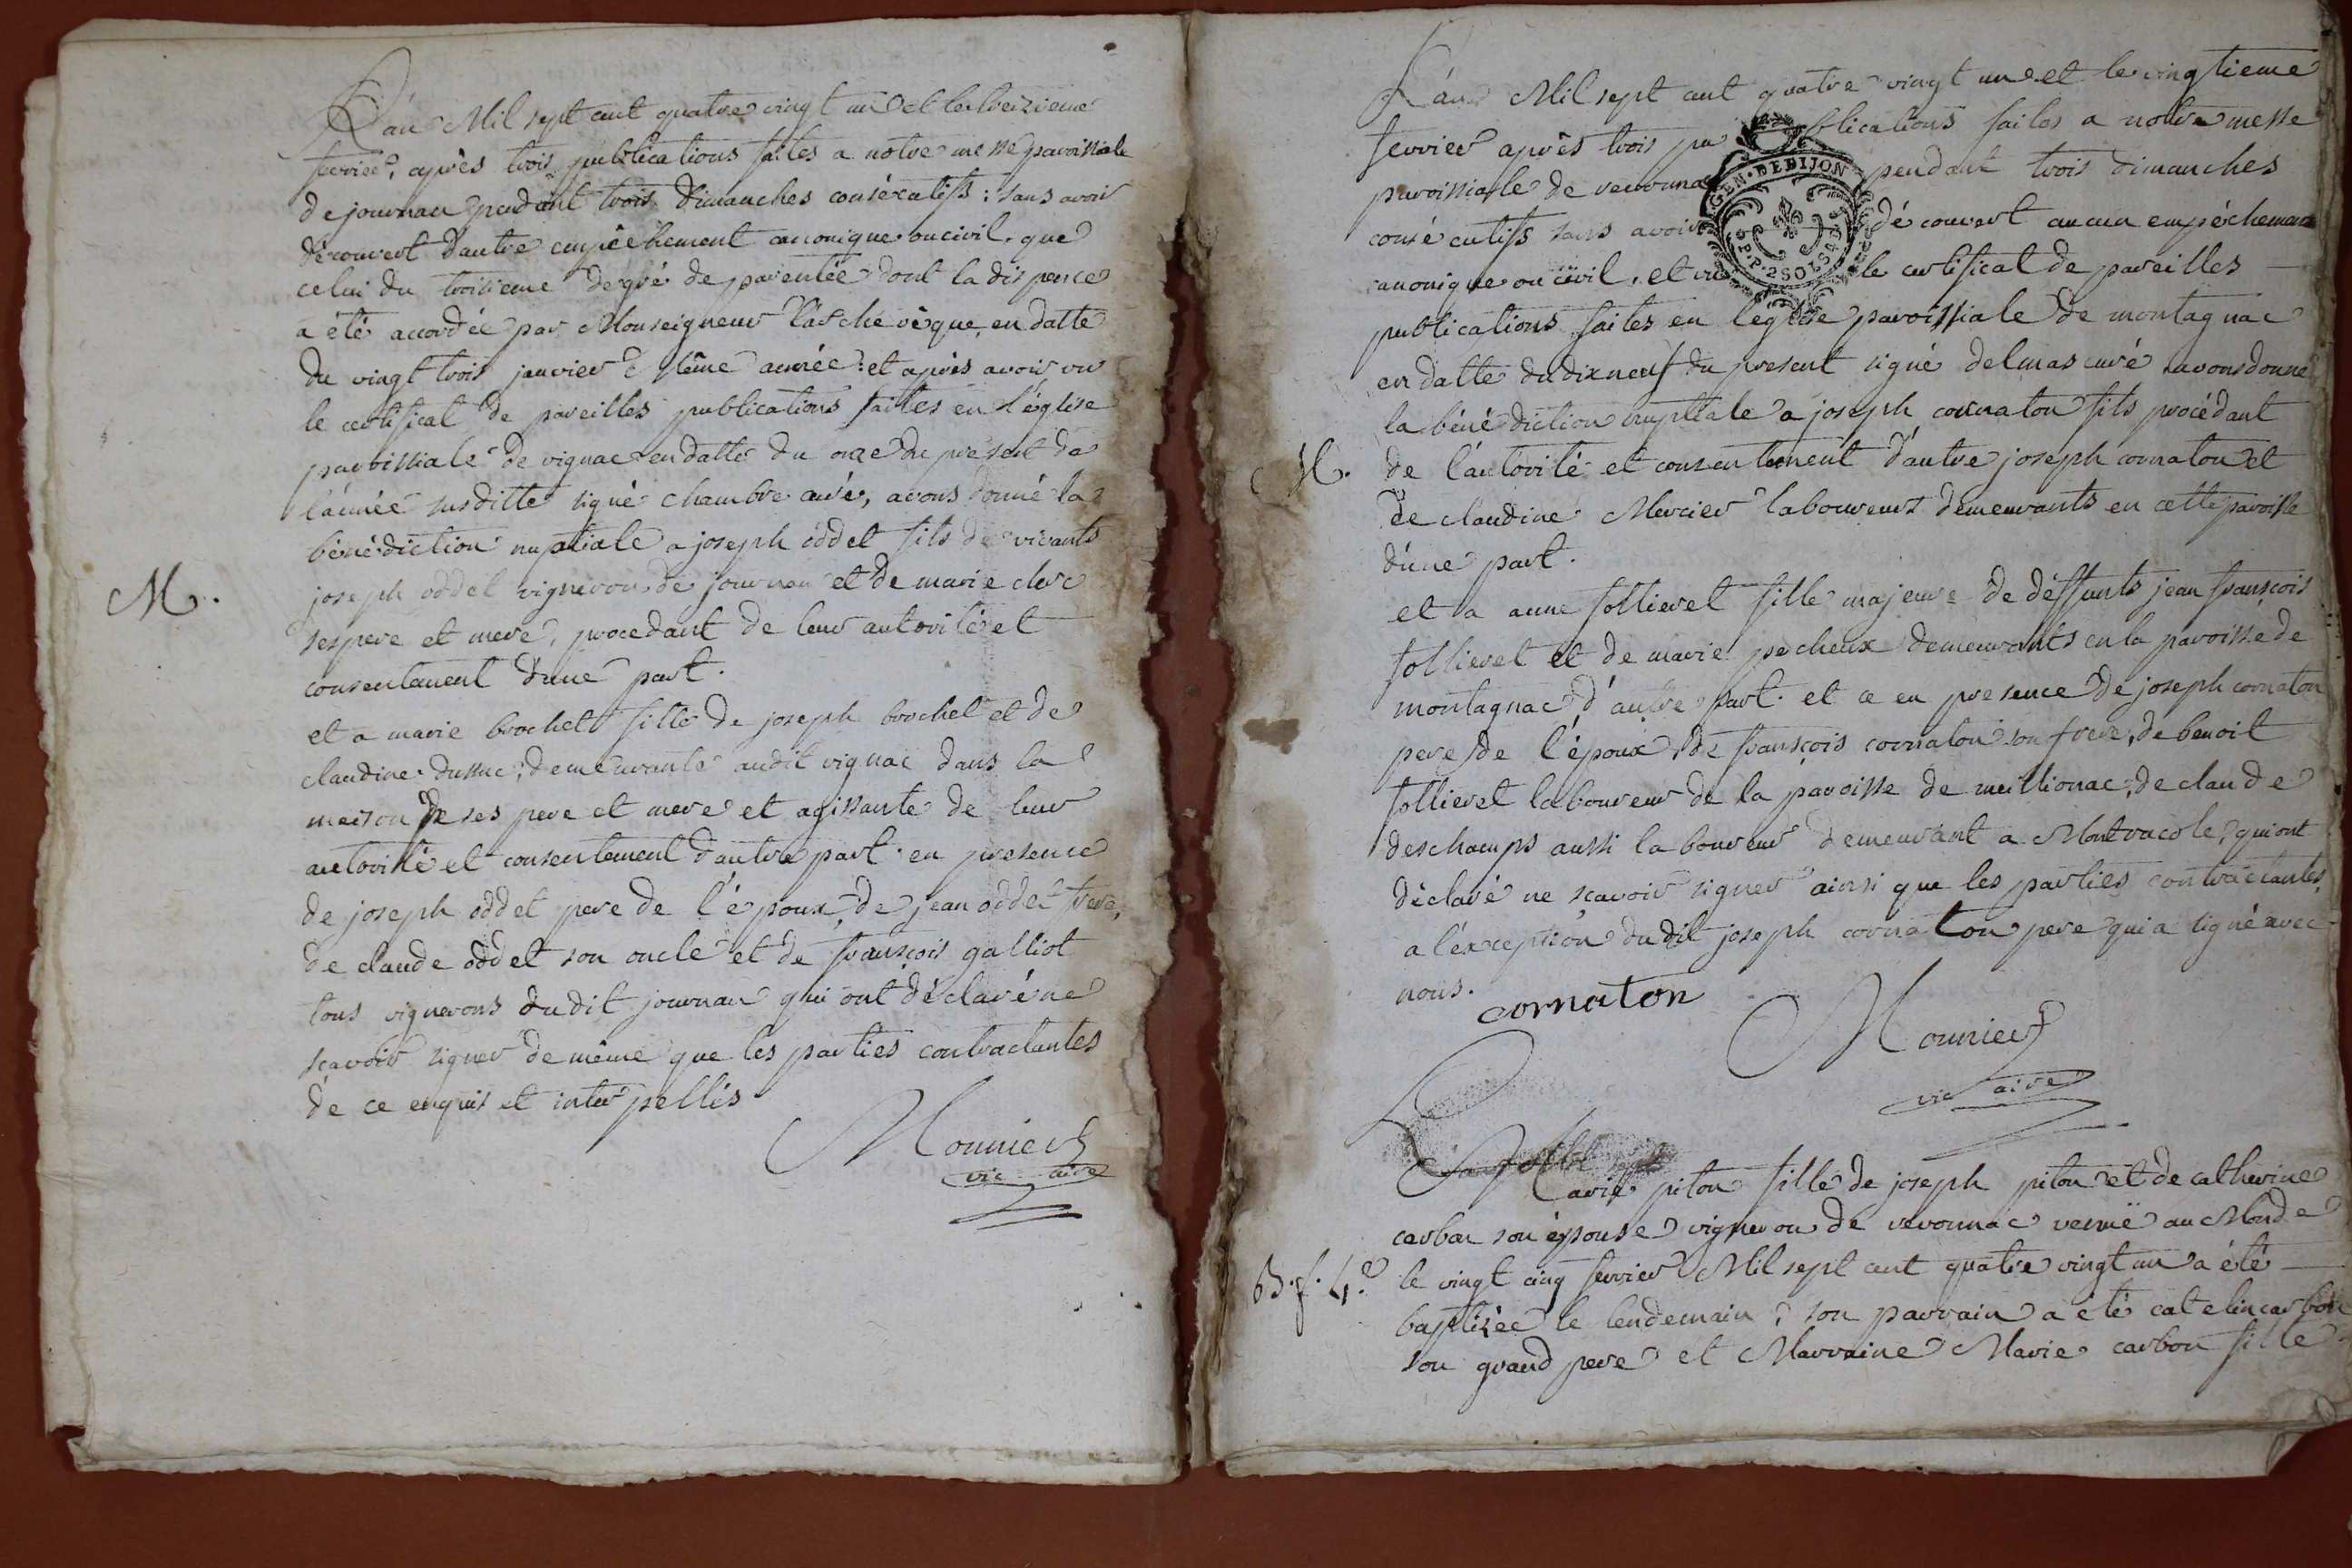 L'an Mil sept cent quatre vingt un et le treizieme
fevrier, après trois publications faites a notre messe paroissiale
de journan pendant trois dimanches consécutifs : sans avoir
découvert d'autre empêchement canonique ou civil. que
celui du troisieme degré de parentée dont la dispence
a été accordée par Monseigneur l'archevêque, en datte
du vingt trois janvier même année : et après avoir vu
le certificat de pareilles publications faites en l'église
paroissiale de vignac en datte du onze du présent de
l'année susditte signé chambre curé, avons donné la
bénédiction nuptiale a joseph oddet fils de vivants
M.
joseph oddet vigneron de journan et de marie clerc
ses pere et mere, procedant de leur autorité et
consentement d'une part.
et a marie brochet fille de joseph brochet et de
claudine dussuc, demeurante audit vignac dans la
maison de ses pere et mere et agissante de leur
autorité et consentement d'autre part. en presence
de joseph oddet pere de l'époux, de jean oddet frere,
de claude oddet son oncle et de françois galliot
tous vignerons dudit journan qui ont déclaré ne
scavoir signer de même que les parties contractantes
de ce enquis et interpellés
Monnier
vicaire
L'an Mil sept cent quatre vingt un et le vingtieme
fevrier après trois publications faites a notre messe
paroissiale de pendant trois dimanches
consécutifs sans avoir découvert aucun empêchement
canonique ou civil. et vu le certificat de pareilles
GEN. DE DIJON
P.P. 2 SOLS 4 D
publications faites en l'église paroissiale de montagnac
en datte du dix neuf du present signé delmas curé avons donné
la bénédiction nuptiale a joseph cornaton fils procédant
M.
de l'autorité et consentement d'autre joseph cornaton et
de claudine Mercier laboureurs demeurants en cette paroisse
d'une part.
et a anne follieret fille majeure de deffunts jean françois
follieret et de marie pecheux demeurants en la paroisse de
montagnac d'autre part. et ce en presence de joseph cornaton
pere de l'époux de françois cornaton son frere, de benoit
follieret laboureur de la paroisse de meillionac, de claude
deschamps aussi laboureur demeurant a Montracole, qui ont
déclaré ne scavoir signer ainsi que les parties contractantes,
a l'exception dudit joseph cornaton pere qui a signé avec
nous.
cornaton
Monnier
vicaire
Marie piton fille de joseph piton et de catherine
carbon son épouse vigneron de revonnac venuë au Monde
B. f. 4e
le vingt cinq fevrier Mil sept cent quatre vingt un a été
baptisée le lendemain, son parrain a été catelin carbon
son grand pere et Marraine Marie carbon fille